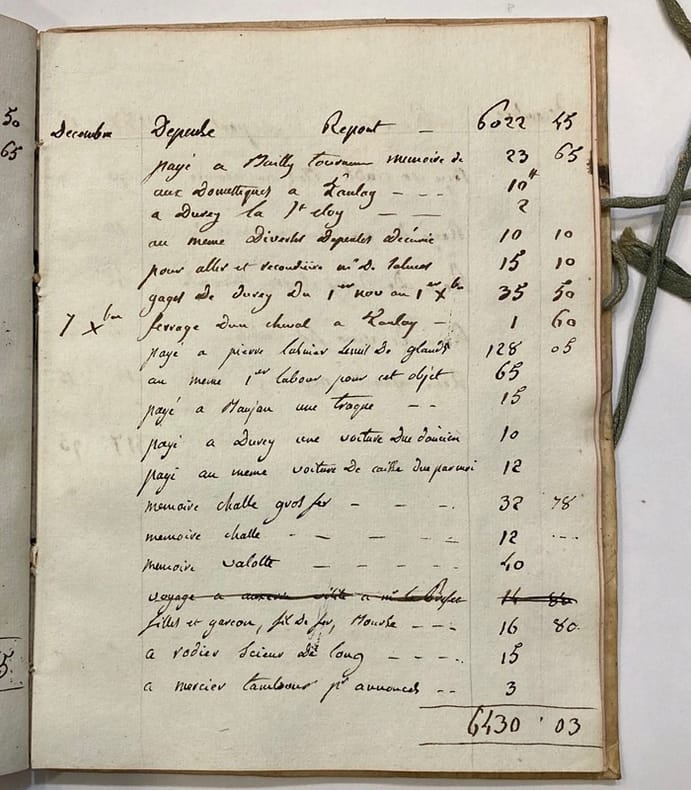 50
65
Decembre Depense Report — 6022 45
payé a Mailly tourneur memoire de 23 65
aux Domestiques a - - - 10#
a Durey la St eloy — — 2
au meme Diverses Depenses Décurie 10 10
pour aller et reconduire mr De 15 10
gages De durey Du 1er nov au 1er Xbre 35 50
7 Xbre ferrage d'un cheval a — 1 60
payé a pierre De glands 128 05
au meme 1er labour pour cet objet 65
payé a Maujan une - - 15
payé a Durey une voiture Due 10
payé au meme voiture De due par moi 12
memoire challe gros fer - - - . 32 78
memoire challe - - - = 12 ...
memoire valotte - - - - - 40
voyage a visite a mr le Prefet 14 80
filles et garcon, fil De fer, - - - 16 80
a rodier Scieur De long - - - - . 15
a mercier tambour pr annonces - - 3
6430 . 03
5.